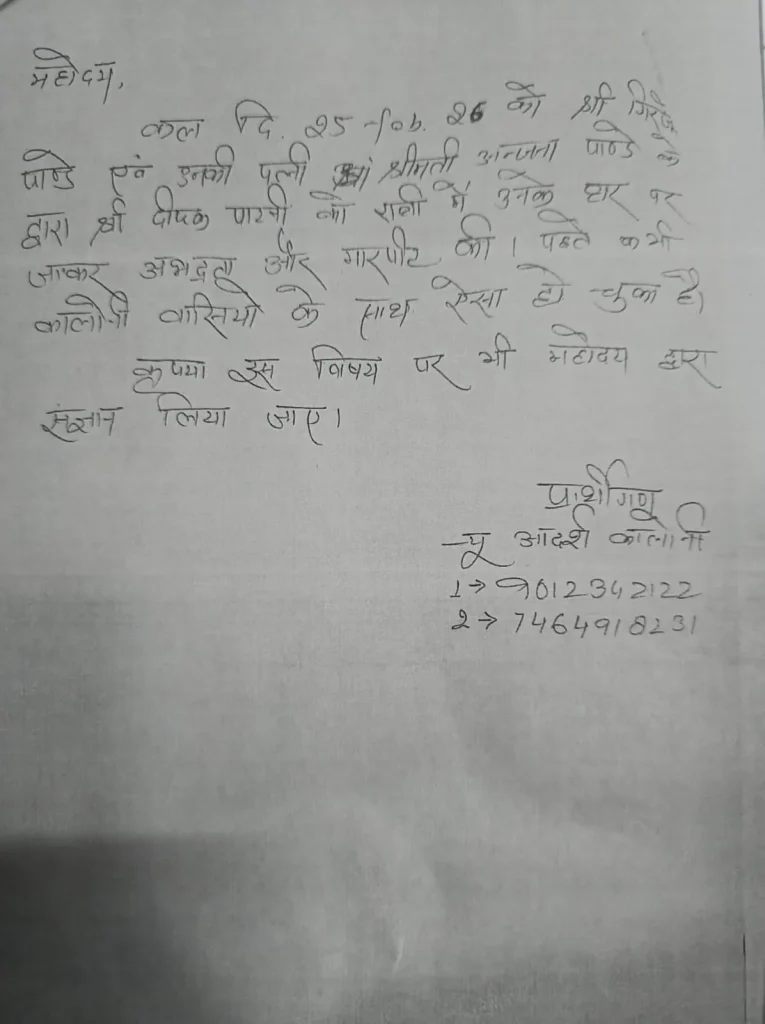 महोदय,
कल दि. 25 feb. 26 को श्री गिरीश
पाण्डे एवं उनकी पत्नी श्रीमती अन्जना पाण्डे के
द्वारा श्री दीपक पाटनी को रात्री में उनके घर पर
जाकर अभद्रता और मारपीट की। पहले कभी
कालोनी वासियो के साथ ऐसा हो चुका है।
कृपया इस विषय पर भी महोदय द्वारा
संज्ञान लिया जाए।
प्रार्थीगण
न्यू आदर्श कालोनी
1→ 9012342122
2→ 7464918231